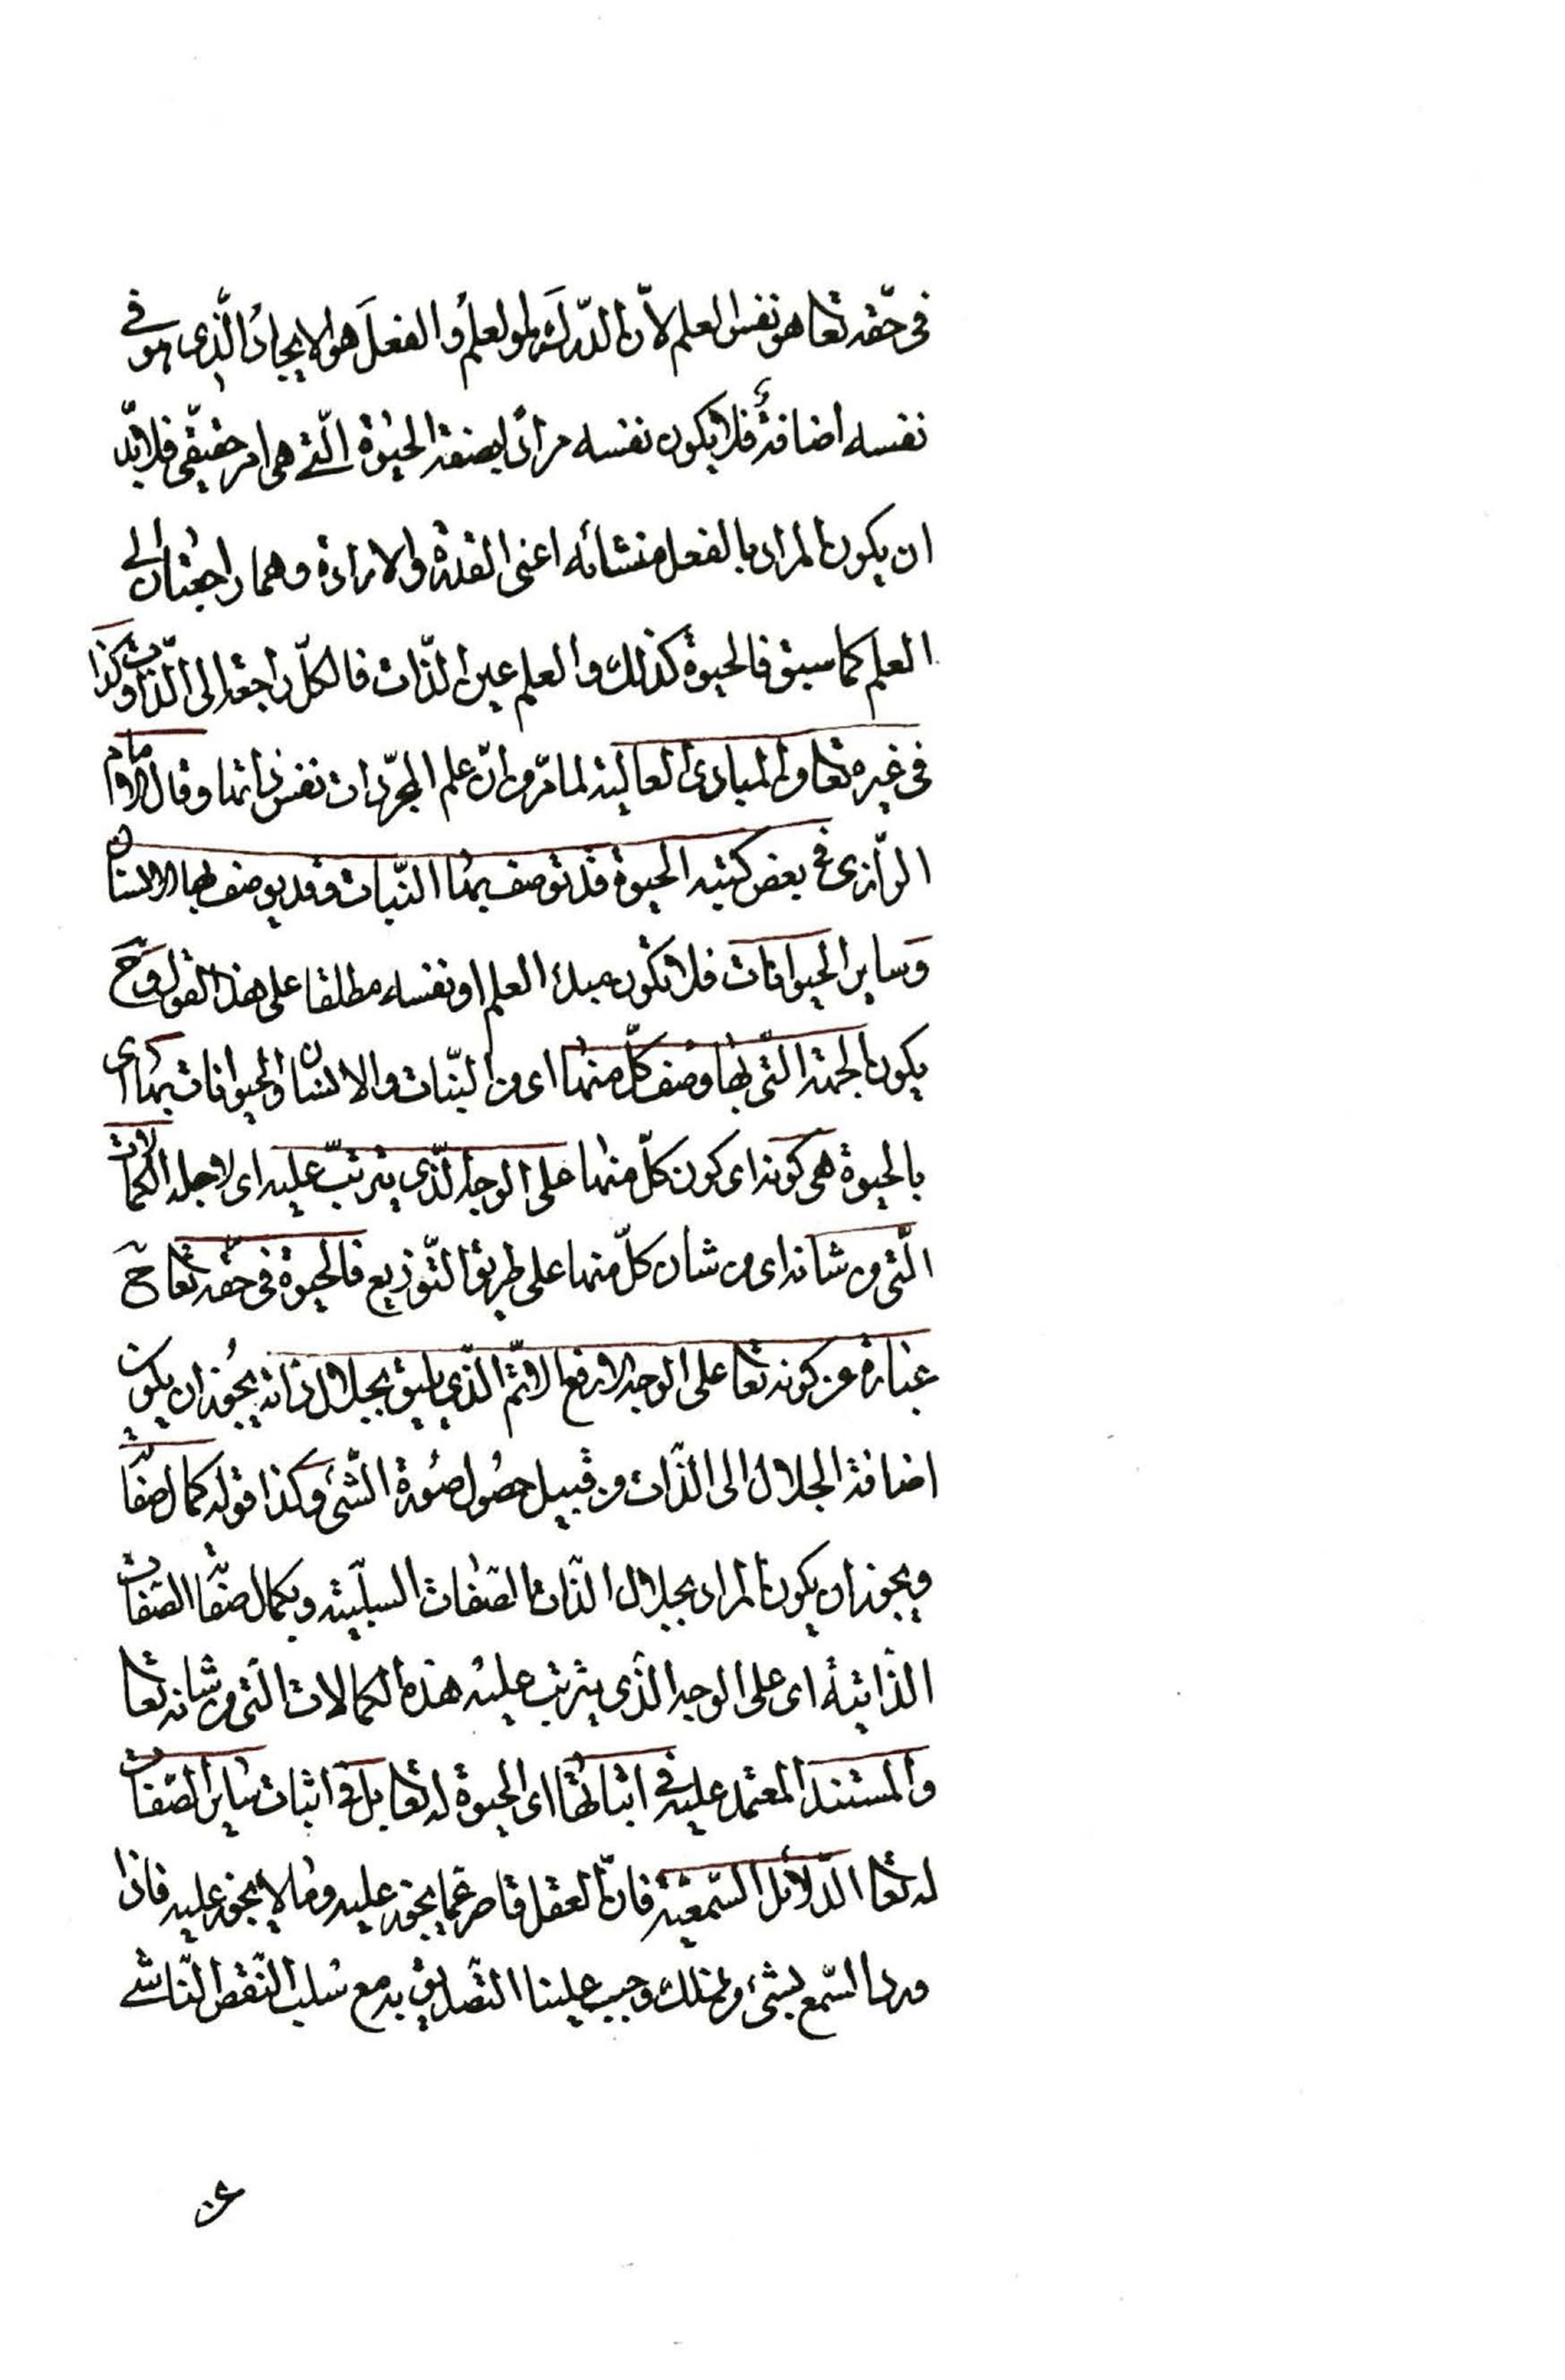 فى حقّه تعا هو نفس العلم لانّ الدّرك هو العلم والفعلَ هو الايجادُ الّذى هو فى
نفسه اضافةٌ فلا يكون نفسه مرادًا بصفة الحيٰوة الّتى هى امر حقيقى فلا بدّ
ان يكون المراد بالفعل منشائه اعنى القدرة والارادة وهما راجعتان الى
العلم كما سبق فالحيوة كذلك والعلم عين الذّات فالكلّ راجعة الى الذّات وكذا
فى غيره تعا من المبادى العالية لما مرّ من انّ علم المجرّدات نفس ذاتها وقال الامام
الرّازى فى بعض كتبه الحيوة قد توصف بها النّبات وقد يوصف بها الانسان
وساير الحيوانات فلا تكون مبدأ العلم او نفسه مطلقا على هذا القول وح
يكون الجهة الّتى بها وصف كلّ منهما اى من النبّات والانسان والحيوانات بها اى
بالحيوة هى كونه اى كون كلّ منهما على الوجه الّذى يترتبّ عليه اى لاجله الكمالات
الّتى من شانه اى من شان كلّ منهما على طريق التّوزيع فالحيوة فى حقّه تعا ح
عبارة عن كونه تعا على الوجه الارفع الاتمّ الّذى يليق بجلال ذاته يجُوز ان يكون
اضافة الجلال الى الذّات من قبيل حصُول صُورة الشّئ وكذا قوله كمال صفاته
ويجوز ان يكون المراد بجلال الذّات الصّفات السلبّية وبكمال صفاته الصّفات
الذّاتيةَ اى على الوجه الذّى يترتب عليه هذه الكمالات الّتى من شانه تعا
والمستند المعتمد عليه فى اثباتها اى الحيوة له تعا بل فى اثبات ساير الصّفات
له تعا الدّلائل السّمعيّة فانّ العقل قاصر عمّا يجوز عليه وما لا يجوز عليه فاذا
ورد السّمع بشئ من ذلك وجب علينا التّصديق به مع سلب النّقص النّاشى
عن